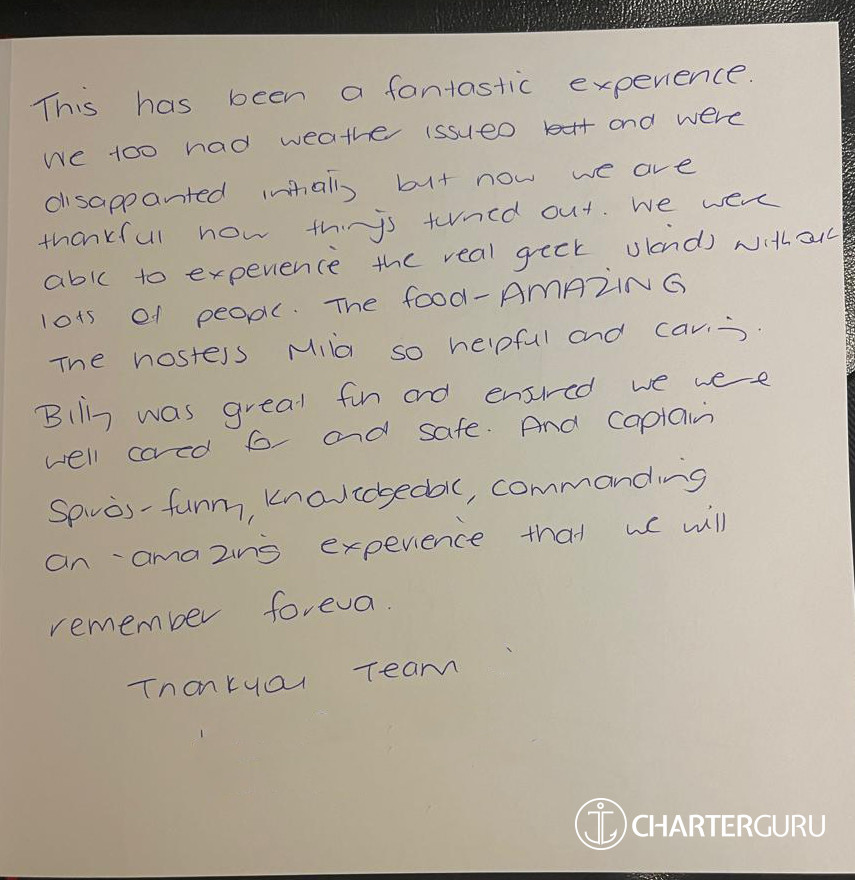 This has been a fantastic experience.
We too had weather issues butt and were
disappanted initially but now we are
thankful how things turned out. We were
able to experience the real greek islands without
lots of people. The food-AMAZING
The hostess Mila so helpful and caring.
Billy was great fun and ensured we were
well cared for and safe. And Captain
Spiros-funny, knowledgeable, commanding
an amazing experience that we will
remember foreva.
Thankyou Team
CHARTERGURU